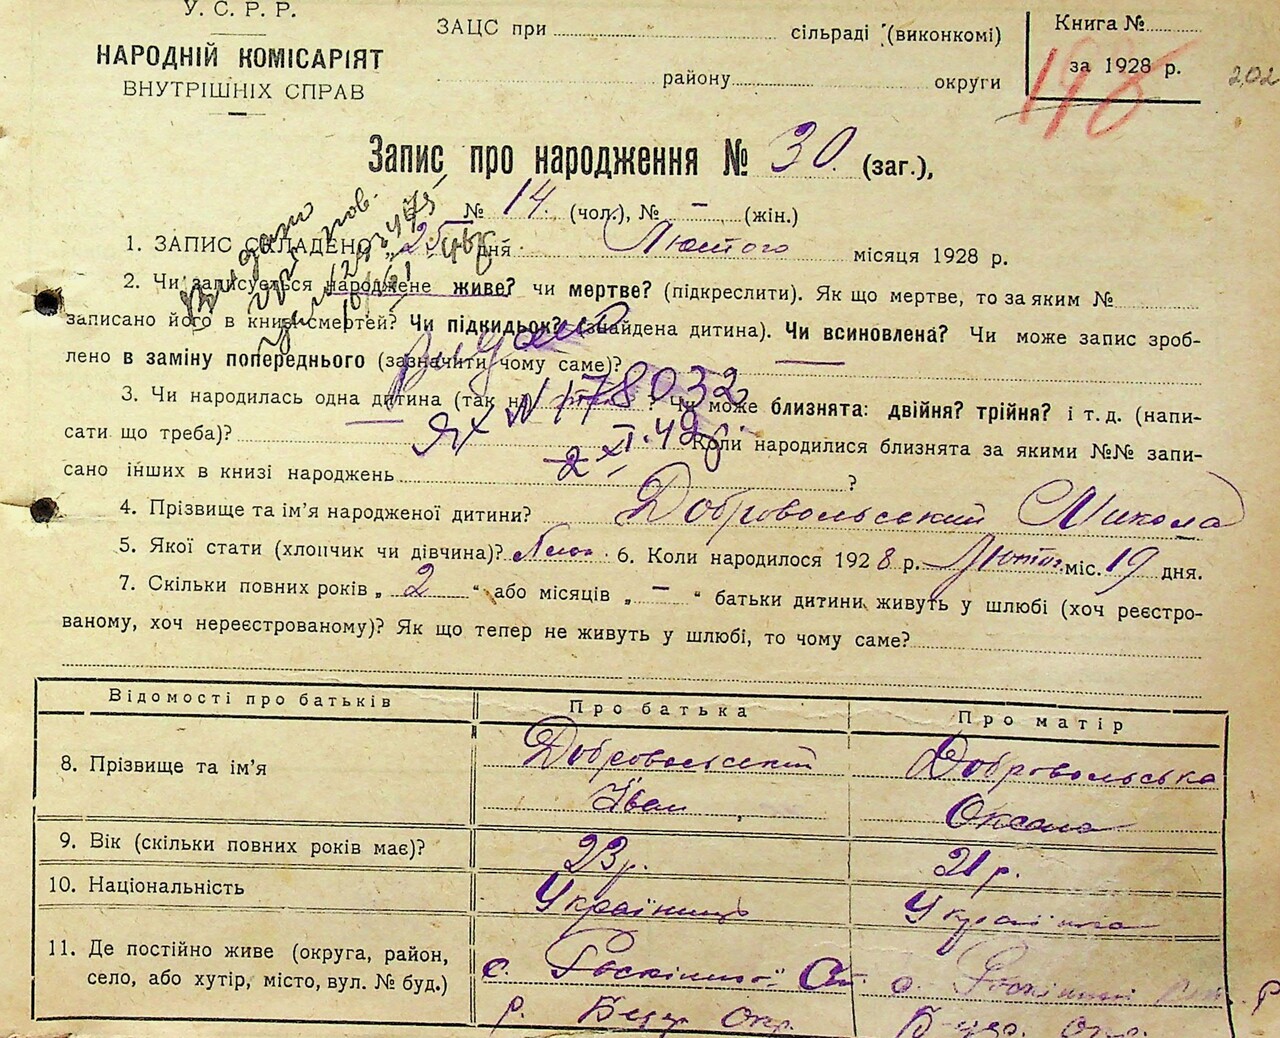 У. С. Р. Р.
НАРОДНІЙ КОМІСАРІЯТ
ВНУТРІШНІХ СПРАВ
ЗАЦС при сільраді (виконкомі)
району округи
Книга №
за 1928 р.
198
202
Запис про народження № 30 (заг.),
№ 14 (чол.), № – (жін.)
1. ЗАПИС СКЛАДЕНО „25 дня Лютого місяця 1928 р.
2. Чи записується народжене живе? чи мертве? (підкреслити). Як що мертве, то за яким №
записано його в книзі смертей? Чи підкидьок? (знайдена дитина). Чи всиновлена? Чи може запис зроб-
лено в заміну попереднього (зазначити чому саме)? —
3. Чи народилась одна дитина (так ? Чи може близнята: двійня? трійня? і т. д. (напи-
сати що треба)? Коли народилися близнята за якими №№ запи-
сано інших в книзі народжень ?
ЯХ № 178032
2 XI. 49
4. Прізвище та ім'я народженої дитини? Добровольський Микола
5. Якої стати (хлопчик чи дівчина)? 6. Коли народилося 1928 р. Лютог. міс. 19 дня.
7. Скільки повних років „ 2 “ або місяців „ – “ батьки дитини живуть у шлюбі (хоч реєстро-
ваному, хоч нереєстрованому)? Як що тепер не живуть у шлюбі, то чому саме?
Відомості про батьків Про батька Про матір
8. Прізвище та ім'я Добровольський Іван Добровольська Оксана
9. Вік (скільки повних років має)? 23 р. 21 р.
10. Національність Українець Українка
11. Де постійно живе (округа, район,
село, або хутір, місто, вул. № буд.)